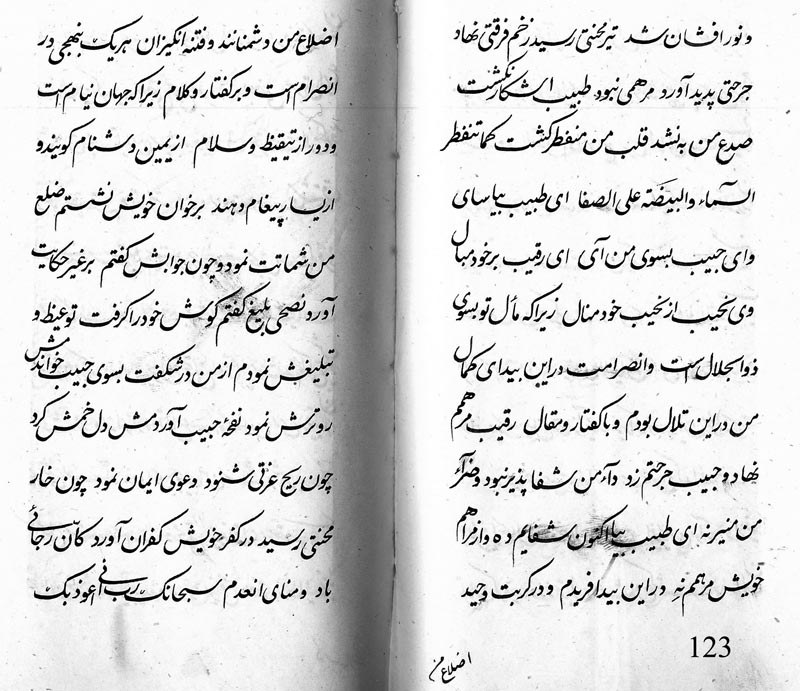 و نور افشان شد تیر محنتی رسید زخم فرقتی نهاد
جرحتی پدید آورد مرهمی نبود طبیب اشکار نگشت
صدع من به نشد قلب من منفطر گشت کما تنفطر
السماء والبیضة علی الصفا ای طبیب بیاسای
وای حبیب بسوی من آی ای رقیب برخود مبال
وی نحیب از نحیب خود منال زیرا که مأل تو بسوی
ذوالجلال است وانصرامت در این بیدای کمال
من در این تلال بودم و با گفتار و مقال رقیب مرهمم
نهاد و حبیب جرحتم زد دآء من شفا پذیر نبود وضرّآء
من منیر نه ای طبیب بیا اکنون شفایم ده واز مراهم
خویش مرهمم نه در این بیدا فریدم و در کربت وحید
اضلاع من
123
اضلاع من دشمنانند و فتنه انگیزان هریک بنهجی در
انصرام است و بر گفتار و کلام زیرا که جهان نیام است
و دور از تیقیظ و سلام از یمین دشنام گویند و
از یسار پیغام دهند برخوان خویش نشستم ضلع
من شماتت نمود و چون جوابش گفتم برغیر حکایت
آورد نصحی بلیغ گفتم گوش خود را گرفت توعیظ و
تبلیغش نمودم از من درشگفت بسوی حبیب خواندمش
روترش نمود نفحهٔ حبیب آوردمش دل خمش کرد
چون ریح عزتی شنود دعوی ایمان نمود چون خار
محنتی رسید در کفر خویش کفران آورد کان رجائی
باد و منای انعدم سبحانک ربانی اعوذ بک